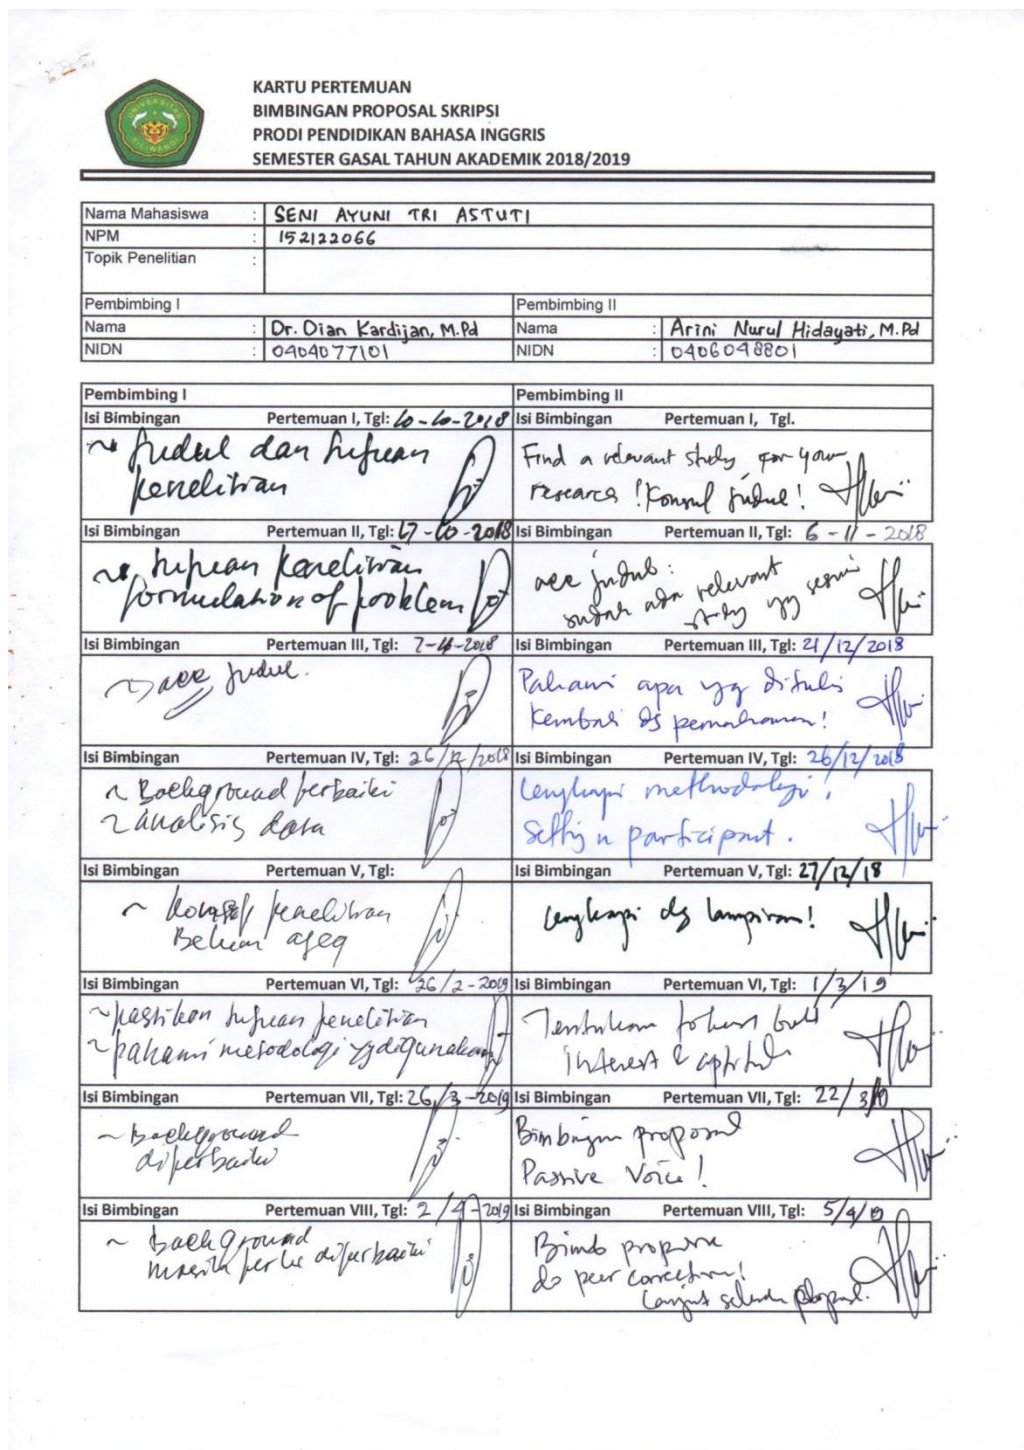 UNIVERSITAS
SILIWANGI
KARTU PERTEMUAN
BIMBINGAN PROPOSAL SKRIPSI
PRODI PENDIDIKAN BAHASA INGGRIS
SEMESTER GASAL TAHUN AKADEMIK 2018/2019
Nama Mahasiswa : SENI AYUNI TRI ASTUTI
NPM : 152122066
Topik Penelitian :
Pembimbing I Pembimbing II
Nama : Dr. Dian Kardijan, M.Pd Nama : Arini Nurul Hidayati, M.Pd
NIDN : 0404077101 NIDN : 0406048801
Pembimbing I Pembimbing II
Isi Bimbingan Pertemuan I, Tgl: 10-10-2018 Isi Bimbingan Pertemuan I, Tgl.
~ Judul dan tujuan
penelitian
Find a relevant study for your
research! Konsul judul!
Isi Bimbingan Pertemuan II, Tgl: 17-10-2018 Isi Bimbingan Pertemuan II, Tgl: 6-11-2018
~ tujuan penelitian
formulation of problem
acc judul:
sudah ada relevant
study yg sesuai
Isi Bimbingan Pertemuan III, Tgl: 7-11-2018 Isi Bimbingan Pertemuan III, Tgl: 21/12/2018
acc judul.
Pahami apa yg ditulis
Kembali dg pemahaman!
Isi Bimbingan Pertemuan IV, Tgl: 26/12/2018 Isi Bimbingan Pertemuan IV, Tgl: 26/12/2018
~ Background perbaiki
~ analisis data
Lengkapi methodologi!
Setting n participant.
Isi Bimbingan Pertemuan V, Tgl: Isi Bimbingan Pertemuan V, Tgl: 27/12/18
~ penelitian
Belum ajeg
Lengkapi dg lampiran!
Isi Bimbingan Pertemuan VI, Tgl: 26/2-2019 Isi Bimbingan Pertemuan VI, Tgl: 1/3/19
~ pastikan tujuan penelitian
~ pahami metodologi yg digunakan
Tentukan fokus
interest &
Isi Bimbingan Pertemuan VII, Tgl: 26/3-2019 Isi Bimbingan Pertemuan VII, Tgl: 22/3/19
~ Background
diperbaiki
Bimbingan proposal
Passive Voice!
Isi Bimbingan Pertemuan VIII, Tgl: 2/4-2019 Isi Bimbingan Pertemuan VIII, Tgl: 5/4/19
~ background
masih perlu diperbaiki
Bimb
do peer correction!
Lanjut